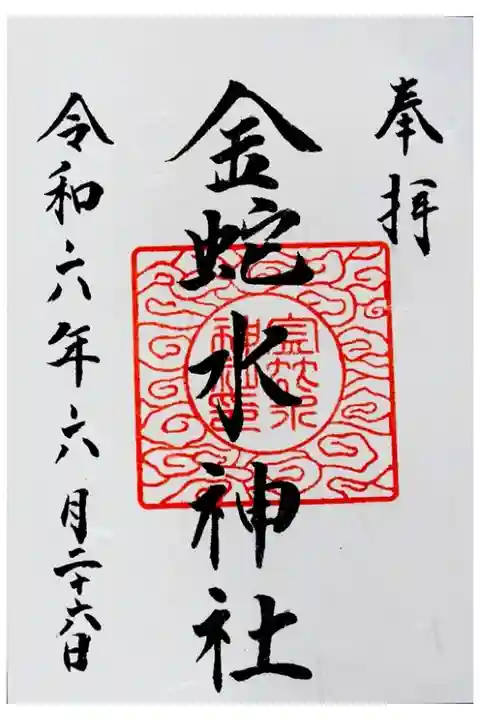 奉拝
金蛇水神社
令和六年六月二十六日